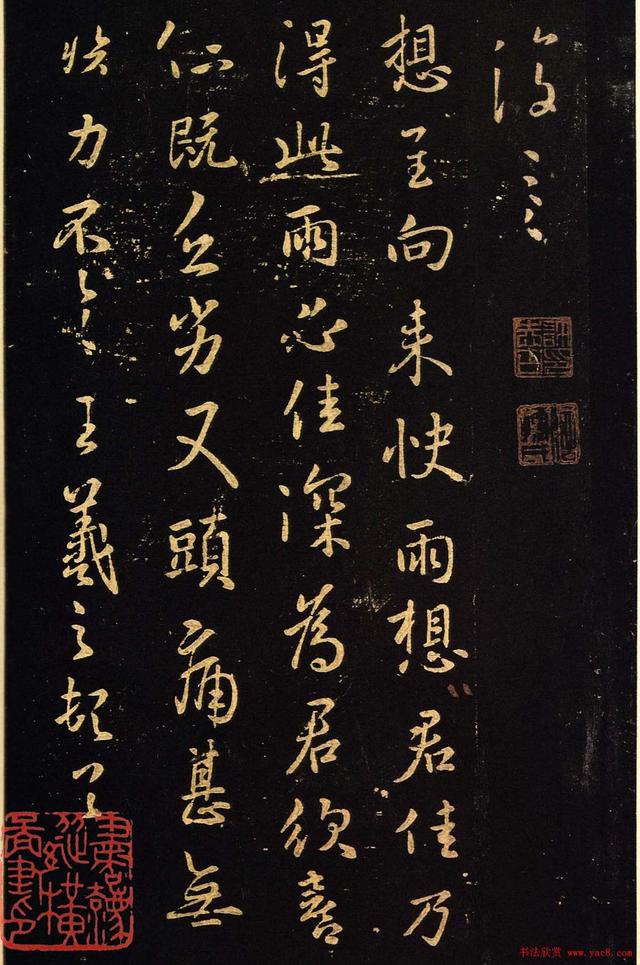 復
想至向来快雨想君佳乃
得此雨必佳深為君欣喜
既乏劣又頭痛甚無
力不 王羲之頓首
书法欣赏 www.yac8.com